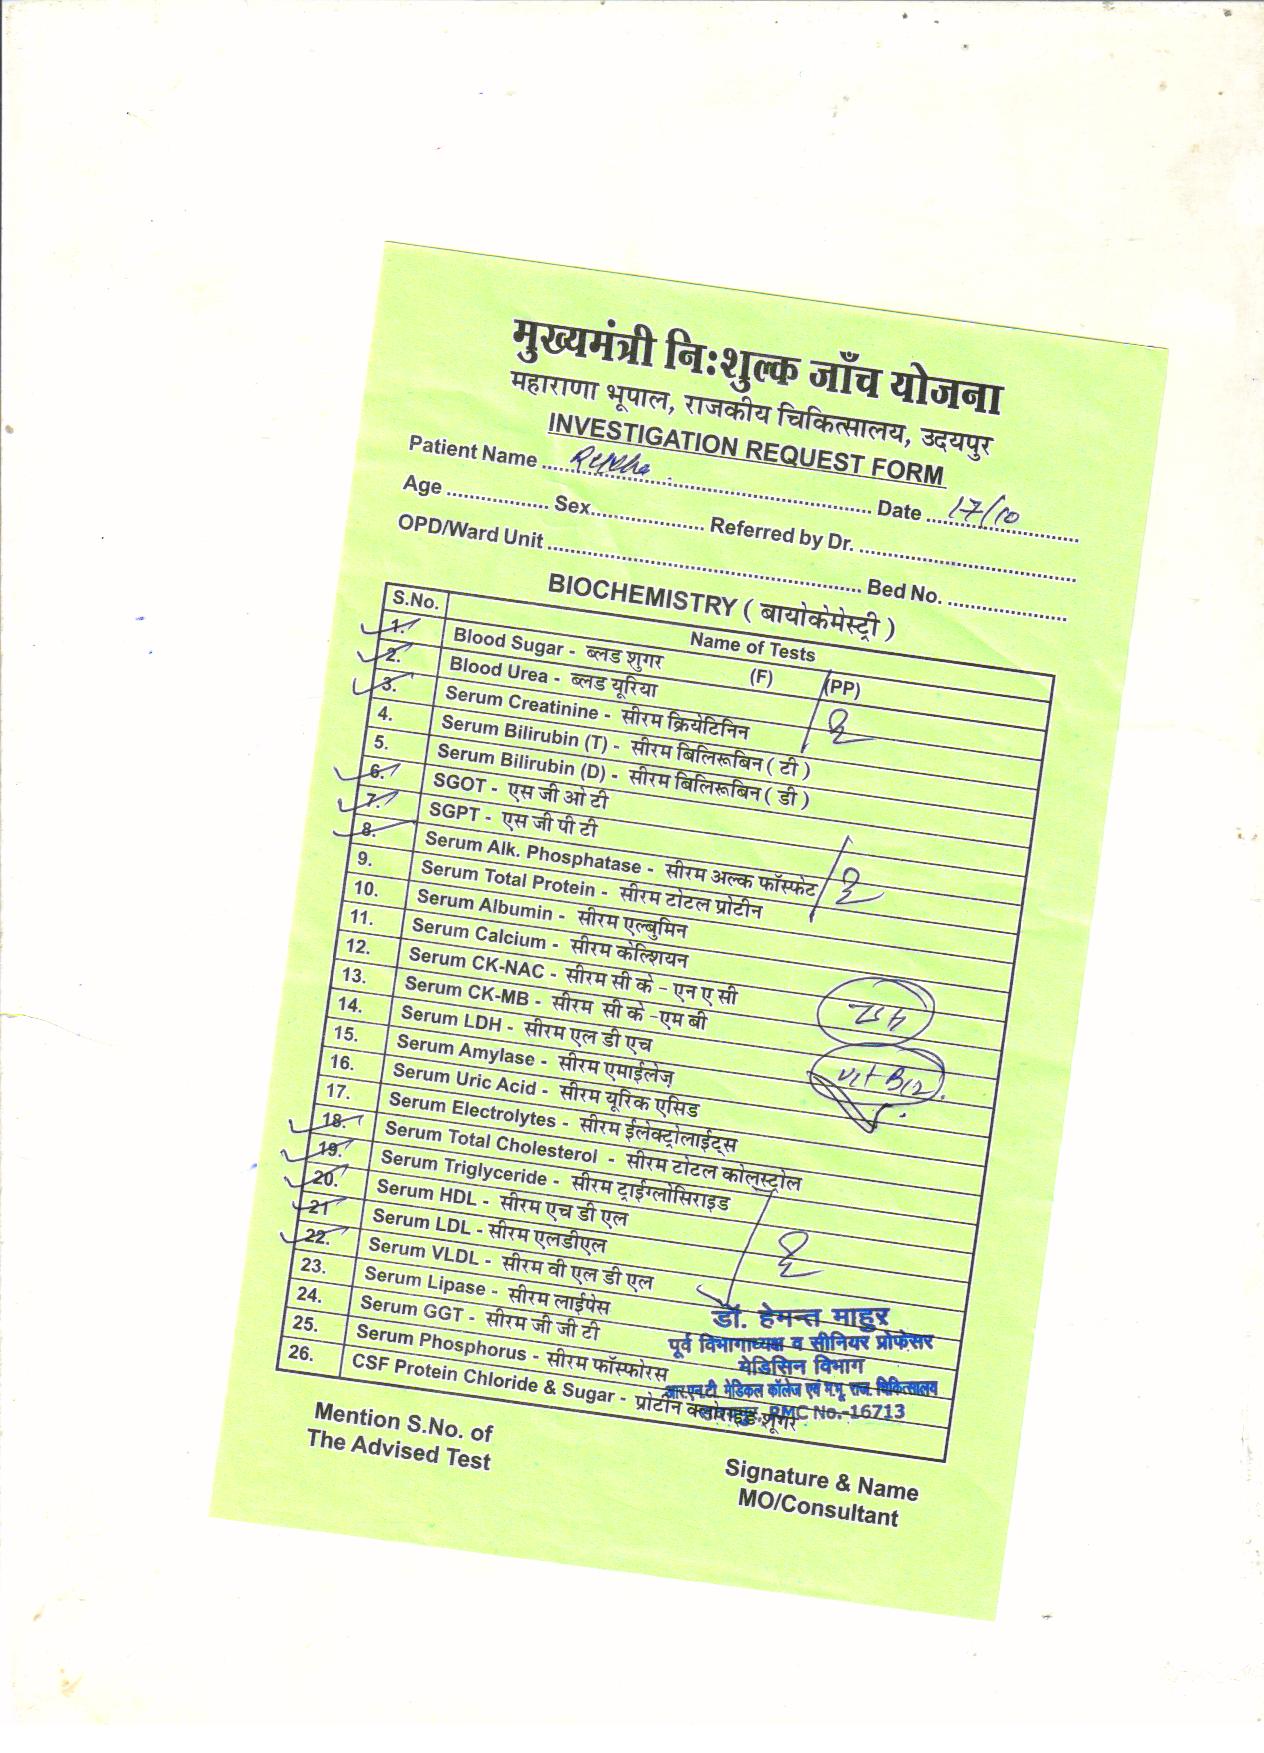 मुख्यमंत्री नि:शुल्क जाँच योजना
महाराणा भूपाल, राजकीय चिकित्सालय, उदयपुर
INVESTIGATION REQUEST FORM
Patient Name ........................ Date 17/10
Age .................. Sex.................... Referred by Dr. ........................................
OPD/Ward Unit ........................................................ Bed No. ......................
BIOCHEMISTRY ( बायोकेमेस्ट्री )
S.No. Name of Tests
1. Blood Sugar - ब्लड शुगर (F) (PP)
2. Blood Urea - ब्लड यूरिया
3. Serum Creatinine - सीरम क्रियेटिनिन
4. Serum Bilirubin (T) - सीरम बिलिरूबिन ( टी )
5. Serum Bilirubin (D) - सीरम बिलिरूबिन ( डी )
6. SGOT - एस जी ओ टी
7. SGPT - एस जी पी टी
8. Serum Alk. Phosphatase - सीरम अल्क फॉस्फेट
9. Serum Total Protein - सीरम टोटल प्रोटीन
10. Serum Albumin - सीरम एल्बुमिन
11. Serum Calcium - सीरम केल्शियन
12. Serum CK-NAC - सीरम सी के - एन ए सी
13. Serum CK-MB - सीरम सी के -एम बी
14. Serum LDH - सीरम एल डी एच
TSH
15. Serum Amylase - सीरम एमाईलेज़
16. Serum Uric Acid - सीरम यूरिक एसिड
Vit B12
17. Serum Electrolytes - सीरम ईलेक्ट्रोलाईट्स
18. Serum Total Cholesterol - सीरम टोटल कोलस्ट्रोल
19. Serum Triglyceride - सीरम ट्राईग्लोसिराइड
20. Serum HDL - सीरम एच डी एल
21 Serum LDL - सीरम एलडीएल
22. Serum VLDL - सीरम वी एल डी एल
23. Serum Lipase - सीरम लाईपेस
24. Serum GGT - सीरम जी जी टी
25. Serum Phosphorus - सीरम फॉस्फोरस
26. CSF Protein Chloride & Sugar - प्रोटीन क्लोराइड शूगर
डॉ. हेमन्त माहुर
पूर्व विभागाध्यक्ष व सीनियर प्रोफेसर
मेडिसिन विभाग
आर.एन.टी. मेडिकल कॉलेज एवं म.भू. राज. चिकित्सालय
RMC No.-16713
Mention S.No. of
The Advised Test
Signature & Name
MO/Consultant